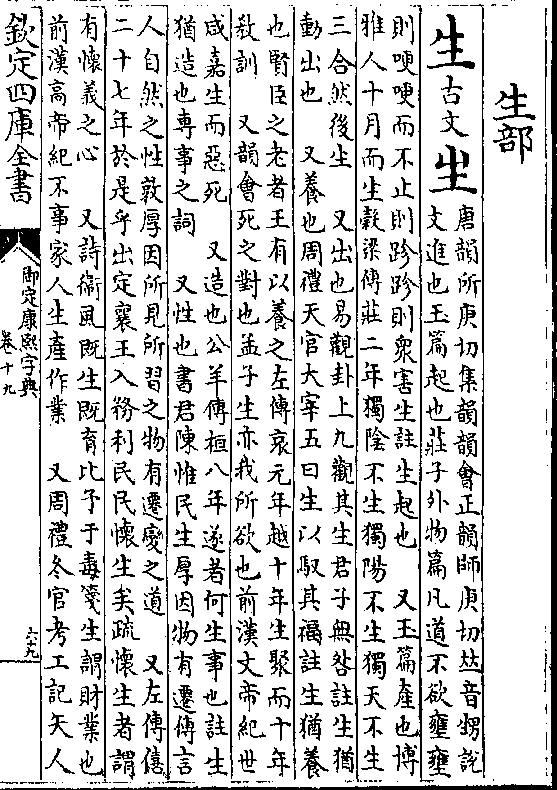 生部
生古文𤯓唐韻所庚切集韻韻會正韻師庚切𠀤音甥說
文進也玉篇起也莊子外物篇凡道不欲壅壅
則哽哽而不止則跈跈則衆害生註生起也　又玉篇產也博
雅人十月而生穀梁傳莊二年獨陰不生獨陽不生獨天不生
三合然後生　又出也易觀卦上九觀其生君子無咎註生猶
動出也　又養也周禮天官大宰五曰生以馭其福註生猶養
也賢臣之老者王有以養之左傳哀元年越十年生聚而十年
敎訓　又韻會死之對也孟子生亦我所欲也前漢文帝紀世
咸嘉生而惡死　又造也公羊傳桓八年遂者何生事也註生
猶造也專事之詞　又性也書君陳惟民生厚因物有遷傳言
人自然之性敦厚因所見所習之物有遷變之道　又左傳僖
二十七年於是乎出定襄王入務利民民懷生矣疏懷生者謂
有懷義之心　又詩衞風旣生旣育比予于毒箋生謂財業也
前漢高帝紀不事家人生產作業　又周禮冬官考工記矢人
欽定四庫全書
御定康熙字典
卷十九
六九